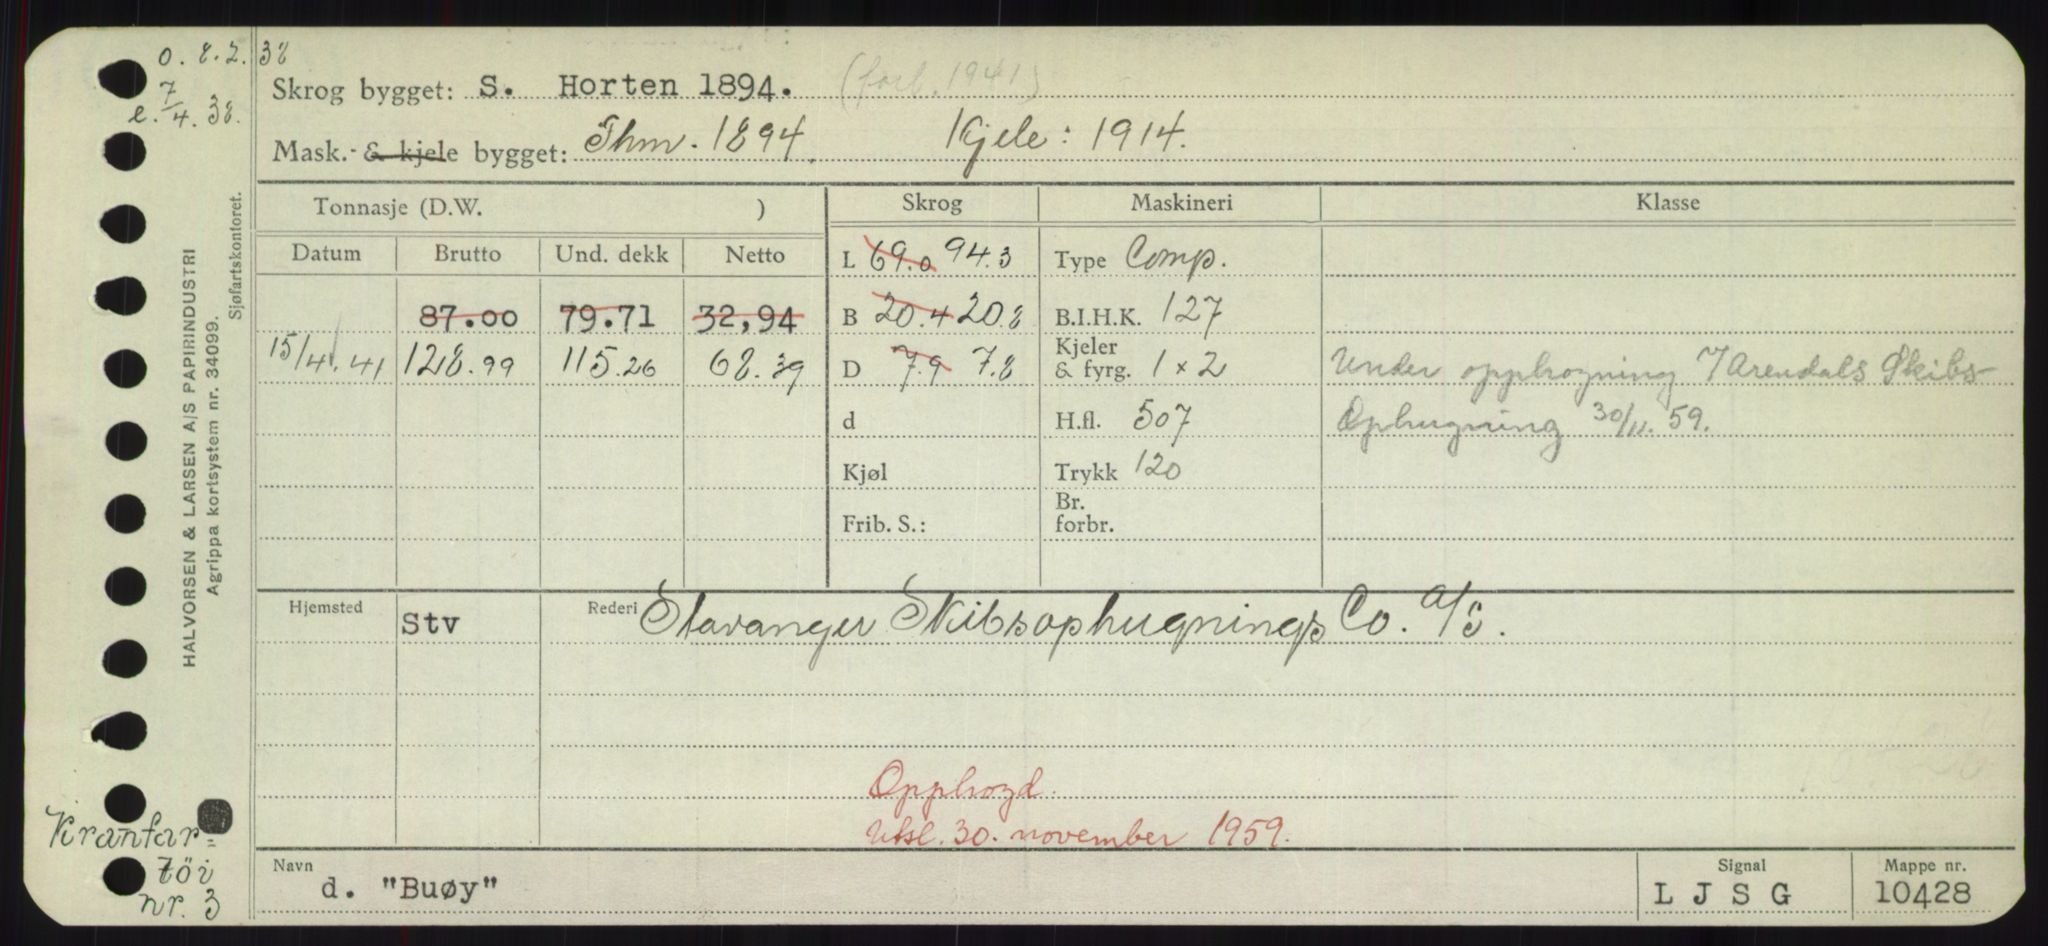 o. 8.2.38
e. 7/4. 38.
Skrog bygget: S. Horten 1894. (forl. 1941)
Mask.- & kjele bygget: Thm. 1894. Kjele: 1914.
Tonnasje (D.W. ) Skrog Maskineri Klasse
Datum Brutto Und. dekk Netto
L 69.0 94.3 Type Comp.
87.00 79.71 32,94 B 20.4 20.8 B.I.H.K. 127
15/4. 41 128.99 115.26 68.39 D 7.9 7.8 Kjeler & fyrg. 1 x 2 Under opphogning v/Arendals Skibs-
d H.fl. 507 Ophugning 30/11. 59.
Kjøl Trykk 120
Frib. S.: Br. forbr.
Hjemsted Stv Rederi Stavanger Skibsophugnings Co. A/S.
Opphogd.
Utsl. 30. november 1959.
Navn d. "Buøy" Signal L J S G Mappe nr. 10428
HALVORSEN & LARSEN A/S PAPIRINDUSTRI
Agrippa kortsystem nr. 34099.
Sjøfartskontoret.
Kranfar=
töi
nr. 3